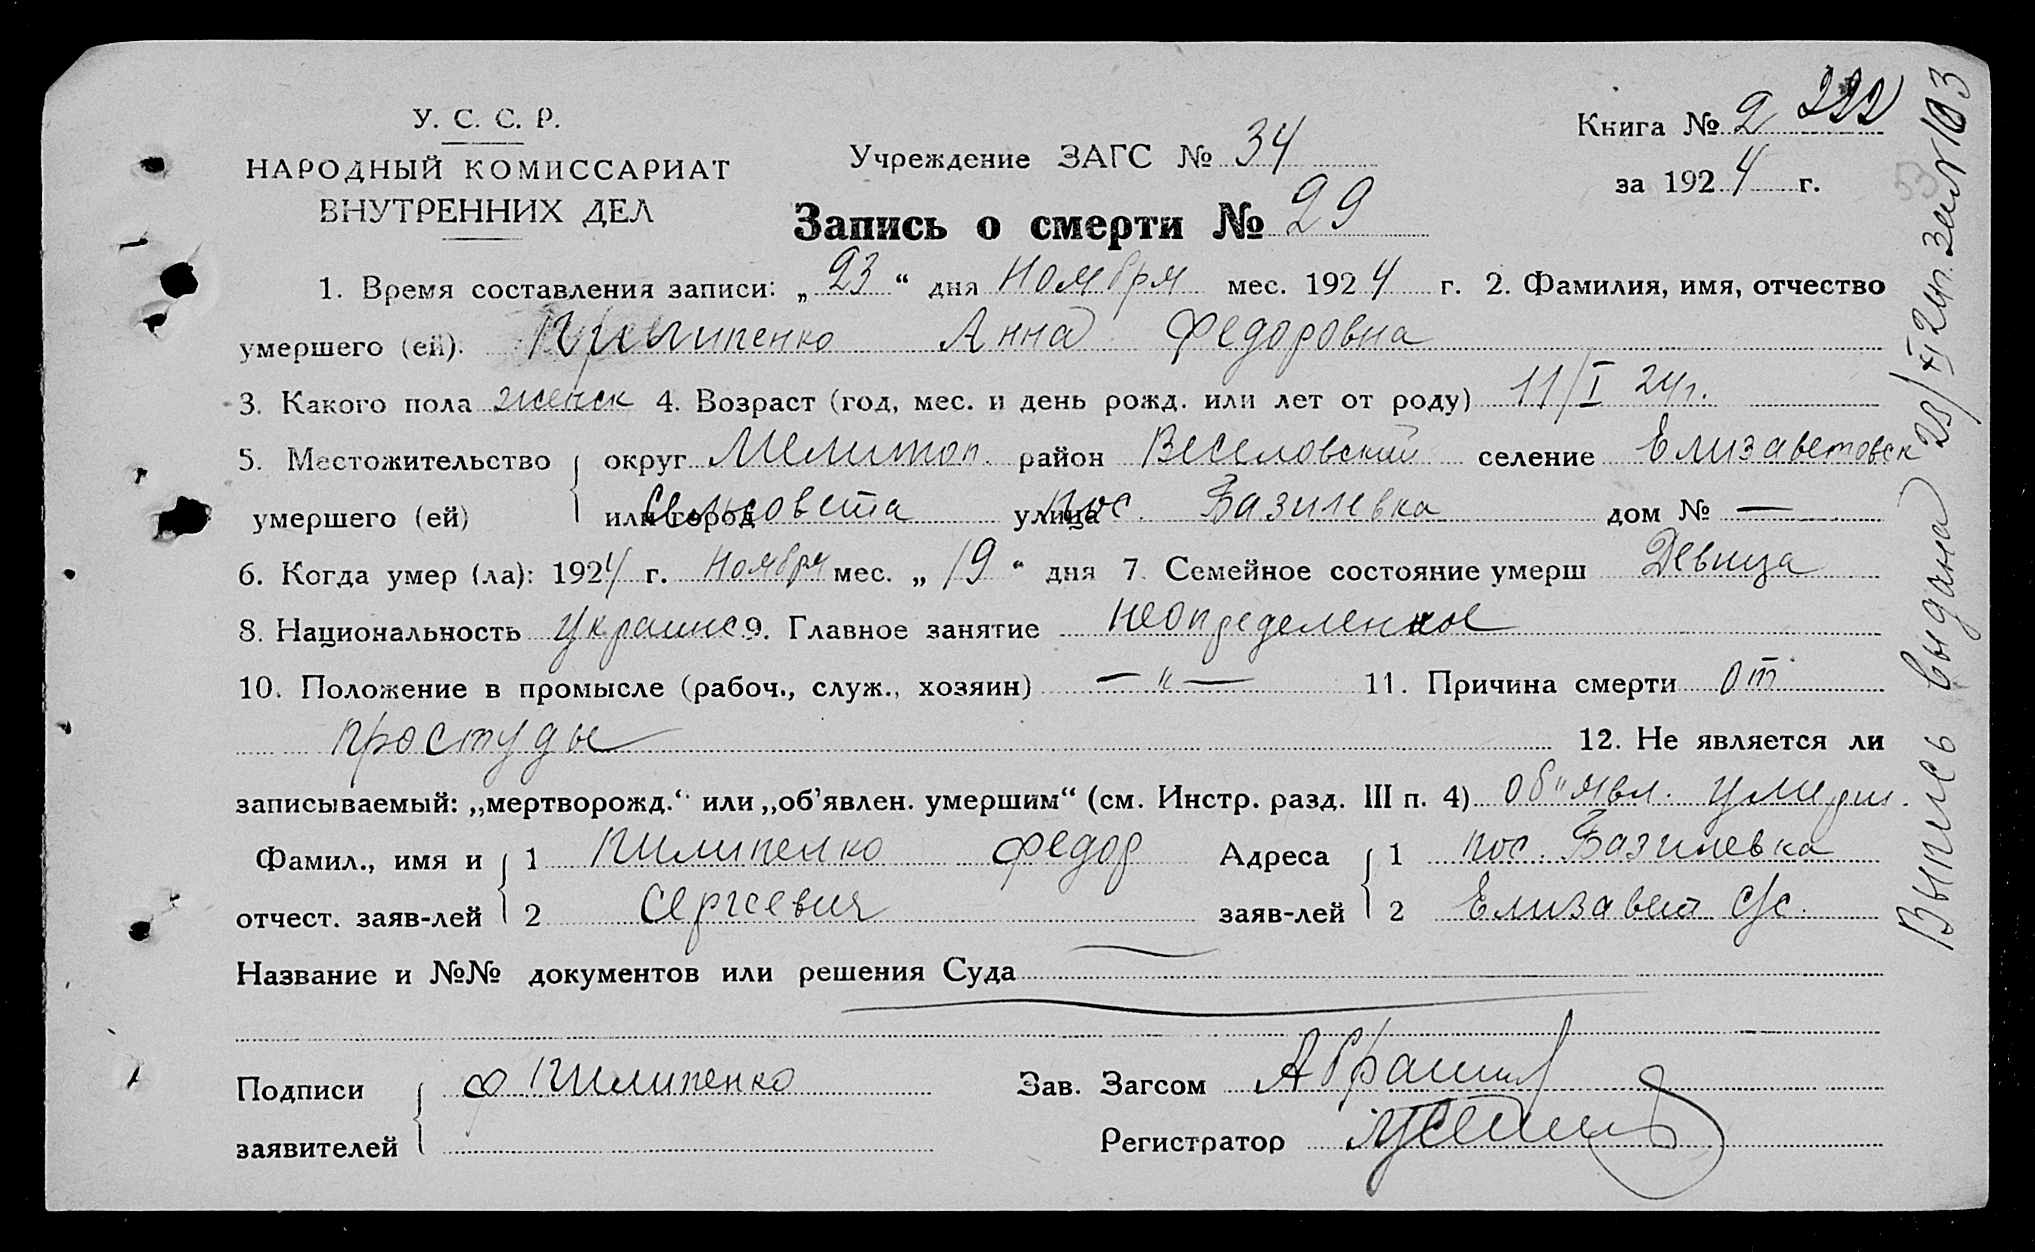 У. С. С. Р.
НАРОДНЫЙ КОМИССАРИАТ
ВНУТРЕННИХ ДЕЛ
Учреждение ЗАГС № 34
Книга № 2 222
за 1924 г.
Запись о смерти № 29
1. Время составления записи: „23“ дня Ноября мес. 1924 г. 2. Фамилия, имя, отчество
умершего (ей). Пилипенко Анна Федоровна
3. Какого пола женск 4. Возраст (год, мес. и день рожд. или лет от роду) 11/I 24г.
5. Местожительство округ Мелитоп. район Веселовский селение Елизаветовск
умершего (ей) или город Сельсовета улица пос. Базилевка дом № —
6. Когда умер (ла): 1924 г. Ноября мес. „19“ дня 7. Семейное состояние умерш Девица
8. Национальность украинс 9. Главное занятие неопределенное
10. Положение в промысле (рабоч., служ., хозяин) — „ — 11. Причина смерти от
простуды 12. Не является ли
записываемый: „мертворожд.“ или „об’явлен. умершим“ (см. Инстр. разд. III п. 4) об"явл. умерш.
Фамил., имя и 1 Пилипенко Федор Адреса 1 пос. Базилевка
отчест. заяв-лей 2 Сергеевич заяв-лей 2 Елизавет с/с.
Название и №№ документов или решения Суда
Подписи Ф Пилипенко Зав. Загсом
заявителей Регистратор
Выпись выдана 23/XI 24г. за № 103
53